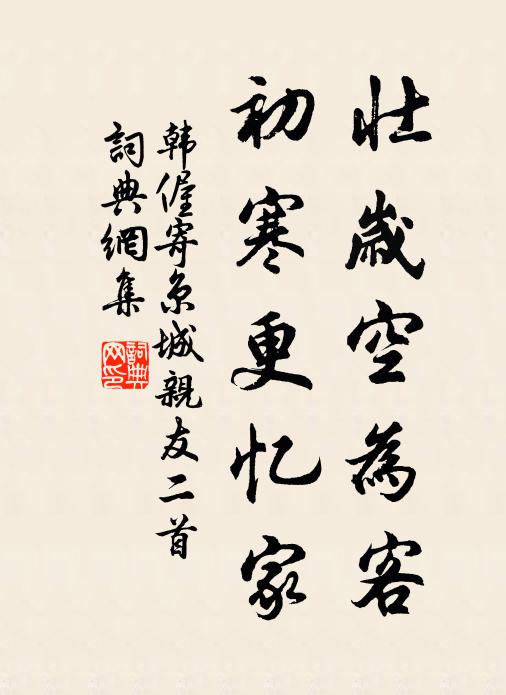 壮歲空為客
初寒更忆家
韩偓寄京城親友二首
詞典網集
詞典
网印